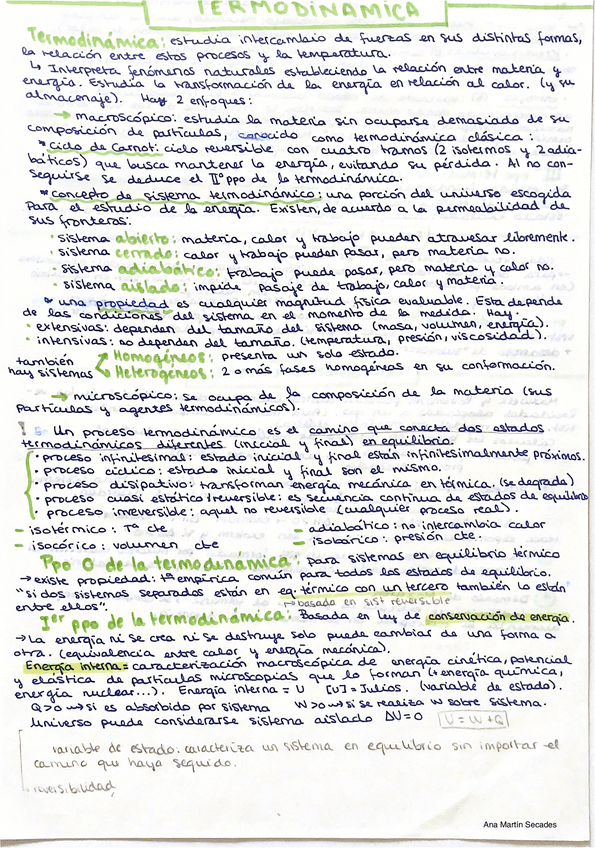 TERMODINAMICA
Termodinámica: estudia intercambio de fuerzas en sus distintas formas,
la relación entre estos procesos y la temperatura.
↳ Interpreta fenómenos naturales estableciendo la relación entre materia y
energía. Estudia la transformación de la energía en relación al calor. (y su
almacenaje). Hay 2 enfoques:
→ macroscópico: estudia la materia sin ocuparse demasiado de su
composición de partículas, conocido como termodinámica clásica:
* ciclo de Carnot: ciclo reversible con cuatro tramos (2 isotermos y 2 adia-
báticos) que busca mantener la energía, evitando su pérdida. Al no con-
seguirse se deduce el IIº ppo de la termodinámica.
* concepto de sistema termodinámico: una porción del universo escogida
para el estudio de la energía. Existen, de acuerdo a la permeabilidad de
sus fronteras:
· sistema abierto: materia, calor y trabajo pueden atravesar libremente.
· sistema cerrado: calor y trabajo pueden pasar, pero materia no.
· sistema adiabático: trabajo puede pasar, pero materia y calor no.
· sistema aislado: impide pasaje de trabajo, calor y materia.
* una propiedad es cualquier magnitud física evaluable. Esta depende
de las condiciones del sistema en el momento de la medida. Hay:
· extensivas: dependen del tamaño del sistema (masa, volumen, energía).
· intensivas: no dependen del tamaño. (temperatura, presión, viscosidad).
también Homogéneos: presenta un solo estado.
hay sistemas Heterogéneos: 2 o más fases homogéneas en su conformación.
→ microscópico: se ocupa de la composición de la materia (sus
partículas y agentes termodinámicos).
! Un proceso termodinámico es el camino que conecta dos estados
termodinámicos diferentes (inicial y final) en equilibrio.
· proceso infinitesimal: estado inicial y final están infinitesimalmente próximos.
· proceso cíclico: estado inicial y final son el mismo.
· proceso disipativo: transforman energía mecánica en térmica. (se degrada)
· proceso cuasi estático/reversible: es secuencia continua de estados de equilibrio
· proceso irreversible: aquel no reversible (cualquier proceso real).
– isotérmico: Tª cte – adiabático: no intercambia calor
– isocórico: volumen cte – isobárico: presión cte.
Ppo 0 de la termodinámica: para sistemas en equilibrio térmico
→ existe propiedad: tª empírica común para todos los estados de equilibrio.
"si dos sistemas separados están en eq. térmico con un tercero también lo están
entre ellos". ↳ basada en sist reversible
1er ppo de la termodinámica: Basada en ley de conservación de energía.
→ La energía ni se crea ni se destruye solo puede cambiar de una forma a
otra. (equivalencia entre calor y energía mecánica).
Energía interna = caracterización macroscópica de energía cinética, potencial
y elástica de partículas microscopias que lo forman (+ energía química,
energía nuclear...). Energía interna = U [U] = Julios. (variable de estado).
Q>0 → si es absorbido por sistema W>0 → si se realiza W sobre sistema.
Universo puede considerarse sistema aislado ΔU=0 U = W + Q
variable de estado: caracteriza un sistema en equilibrio sin importar el
camino que haya seguido.
reversibilidad
Ana Martín Secades